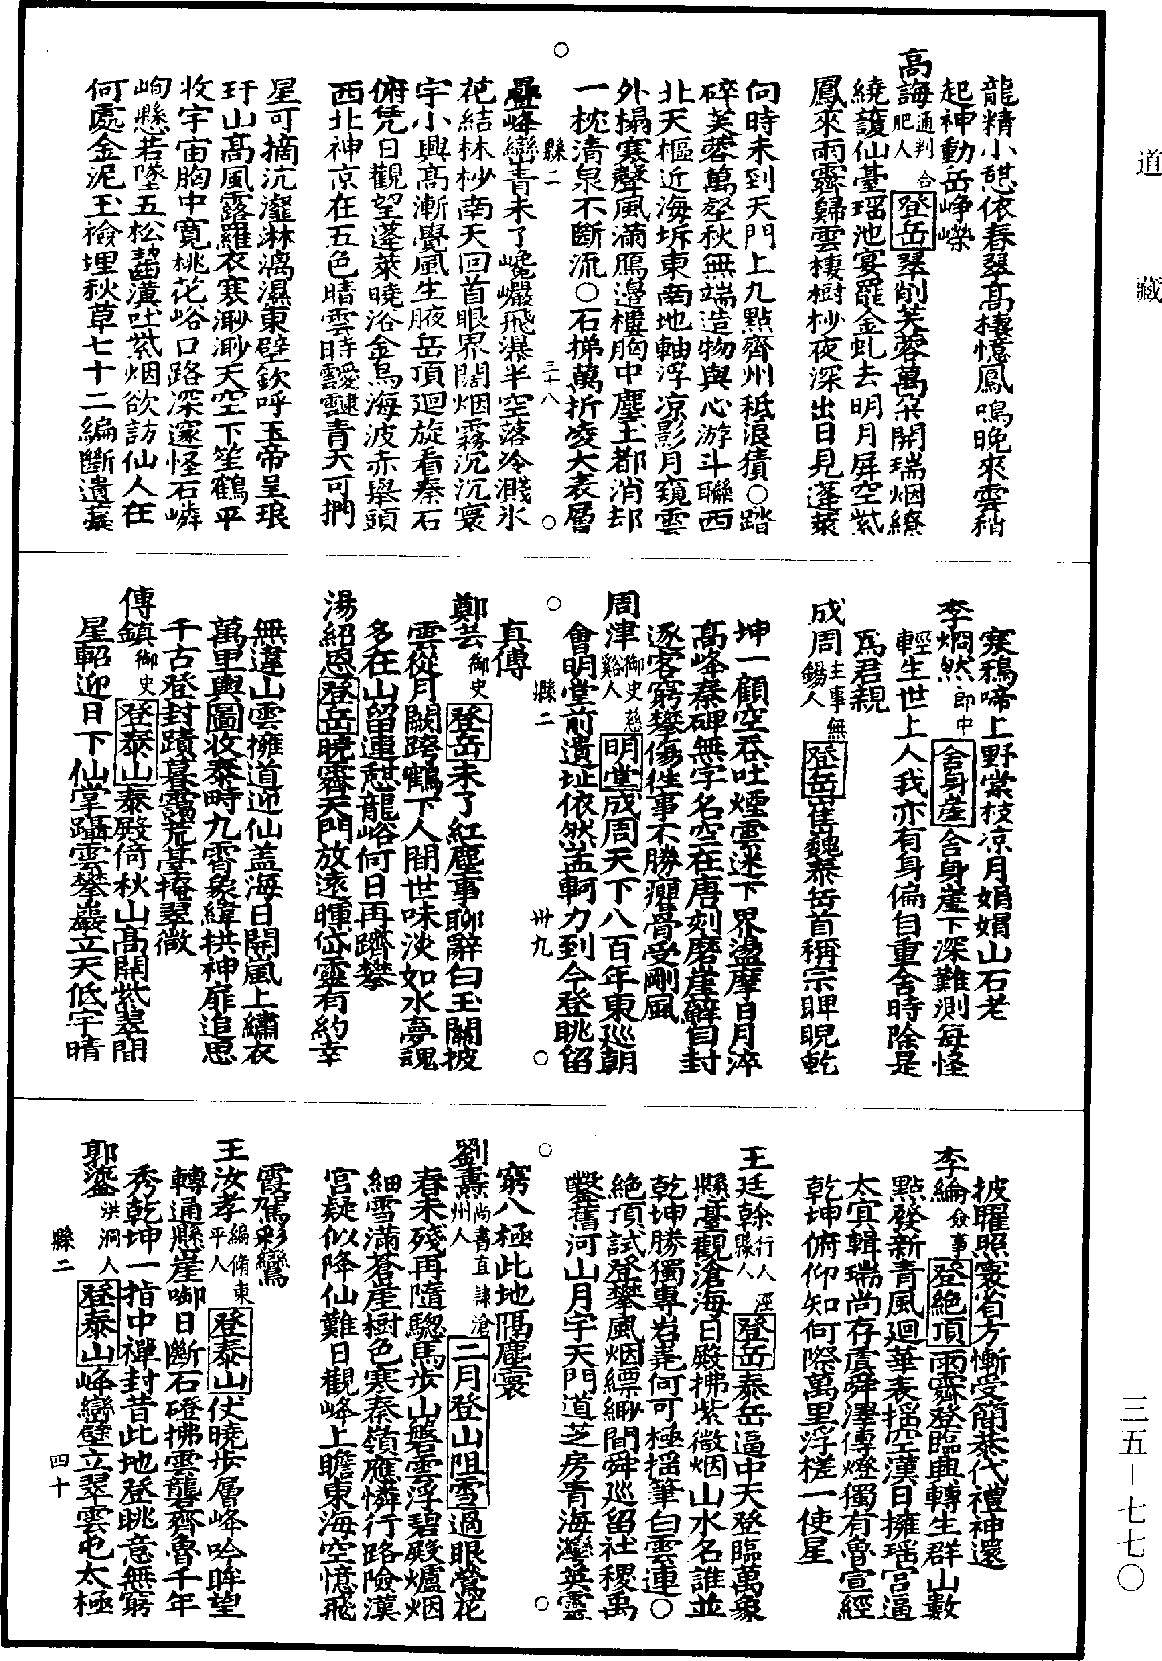 道藏
龍精小憩依春翠高攓憶鳳鳴晚來雲稍
起神動岳崢嶸
高誨通判合肥人登岳翠削芙蓉萬朵開瑞烟繚
繞護仙臺瑶池宴罷金虬去明月屏空紫
鳳來雨霽歸雲棲樹杪夜深出日見蓬萊
向時未到天門上九點齊州秪浪猜○踏
碎芙蓉萬壑秋無端造物與心游斗聯西
北天樞近海坼東南地軸浮凉影月窺雲
外榻寒聲風滿鴈邊樓胸中塵土都消却
一枕清泉不斷流○石梯萬折凌大表層
縣二
三十八
疊峰巒青未了巉巖飛瀑半空落冷濺氷
花結林杪南天回首眼界闊烟霧沉沉寰
宇小興髙漸覺風生腋岳頂迴旋看秦石
俯凭日觀望蓬萊曉浴金烏海波赤舉頭
西北神京在五色晴雲時靉靆青天可捫
星可摘沆瀣淋漓濕東壁欽呼玉帝呈琅
玕山髙風露羅衣寒渺渺天空下笙鶴平
收宇宙胸中寬桃花峪口路深邃怪石嶙
峋懸若墜五松齧潢吐紫烟欲訪仙人在
何處金泥玉檢埋秋草七十二編斷遺藁
寒鴉啼上野棠枝凉月娟娟山石老
李烱然郎中舍身崖舍身崖下深難測每怪
輕生世上人我亦有身偏自重舍時除是
爲君親
成周主事無錫人登岳崔巍泰岳首稱宗睥睨乾
坤一顧空吞吐煙雲迷下界盪摩日月淬
高峰秦碑無字名空在唐刻磨崖蘚自封
逐客窮攀傷徃事不勝癯骨受剛風
周津御史慈谿人明堂成周天下八百年東巡朝
會明堂前遺址依然孟軻力到今登眺留
縣二
卅九
真傳
鄭芸御史登岳未了紅塵事聊辭白玉關披
雲從月闕跨鶴下人間世味淡如水夢魂
多在山留連憇龍峪何日再躋攀
湯紹恩登岳曉霽天門放遠暉岱靈有約幸
無違山雲擁道迎仙盖海日開風上繡衣
萬里輿圖收泰畤九霄象緯拱神扉追思
千古登封蹟暮靄荒臺掩翠微
傅鎮御史登泰山泰殿倚秋山髙開紫翠間
星軺迎日下仙掌躡雲攀巖立天低宇晴
披曜照寰省方慚受簡恭代禮神還
李綸僉事登絶頂雨霽登臨興轉生群山數
點發新青風迴華表揺空漢日擁瑶宫逼
太宜輯瑞尚存虞舜澤傳燈獨有魯宣經
乾坤俯仰知何際萬里浮槎一使星
王廷榦行人涇縣人登岳泰岳逼中天登臨萬象
懸臺觀滄海日殿拂紫微烟山水名誰並
乾坤勝獨專岩堯何可極揺筆白雲連○
絶頂試登攀風烟縹緲間舜巡留社稷禹
鑿舊河山月宇天門道芝房青海灣英靈
窮八極此地隔塵寰
劉燾尚書直隷滄州人二月登山阻雪過眼鶯花
春未殘再隨驄馬步山盤雲浮碧殿爐烟
細雪滿蒼崖樹色寒秦嶺應憐行路險漢
官疑似降仙難日觀峰上瞻東海空憶飛
霞駕彩鸞
王汝孝編脩東平人登泰山伏曉步層峰吟眸望
轉通懸崖啣日斷石磴拂雲礱齊魯千年
秀乾坤一指中禪封昔此地登眺意無窮
郭鋆洪洞人登泰山峰巒壁立翠雲屯太極
縣二
四十
三五—七七〇